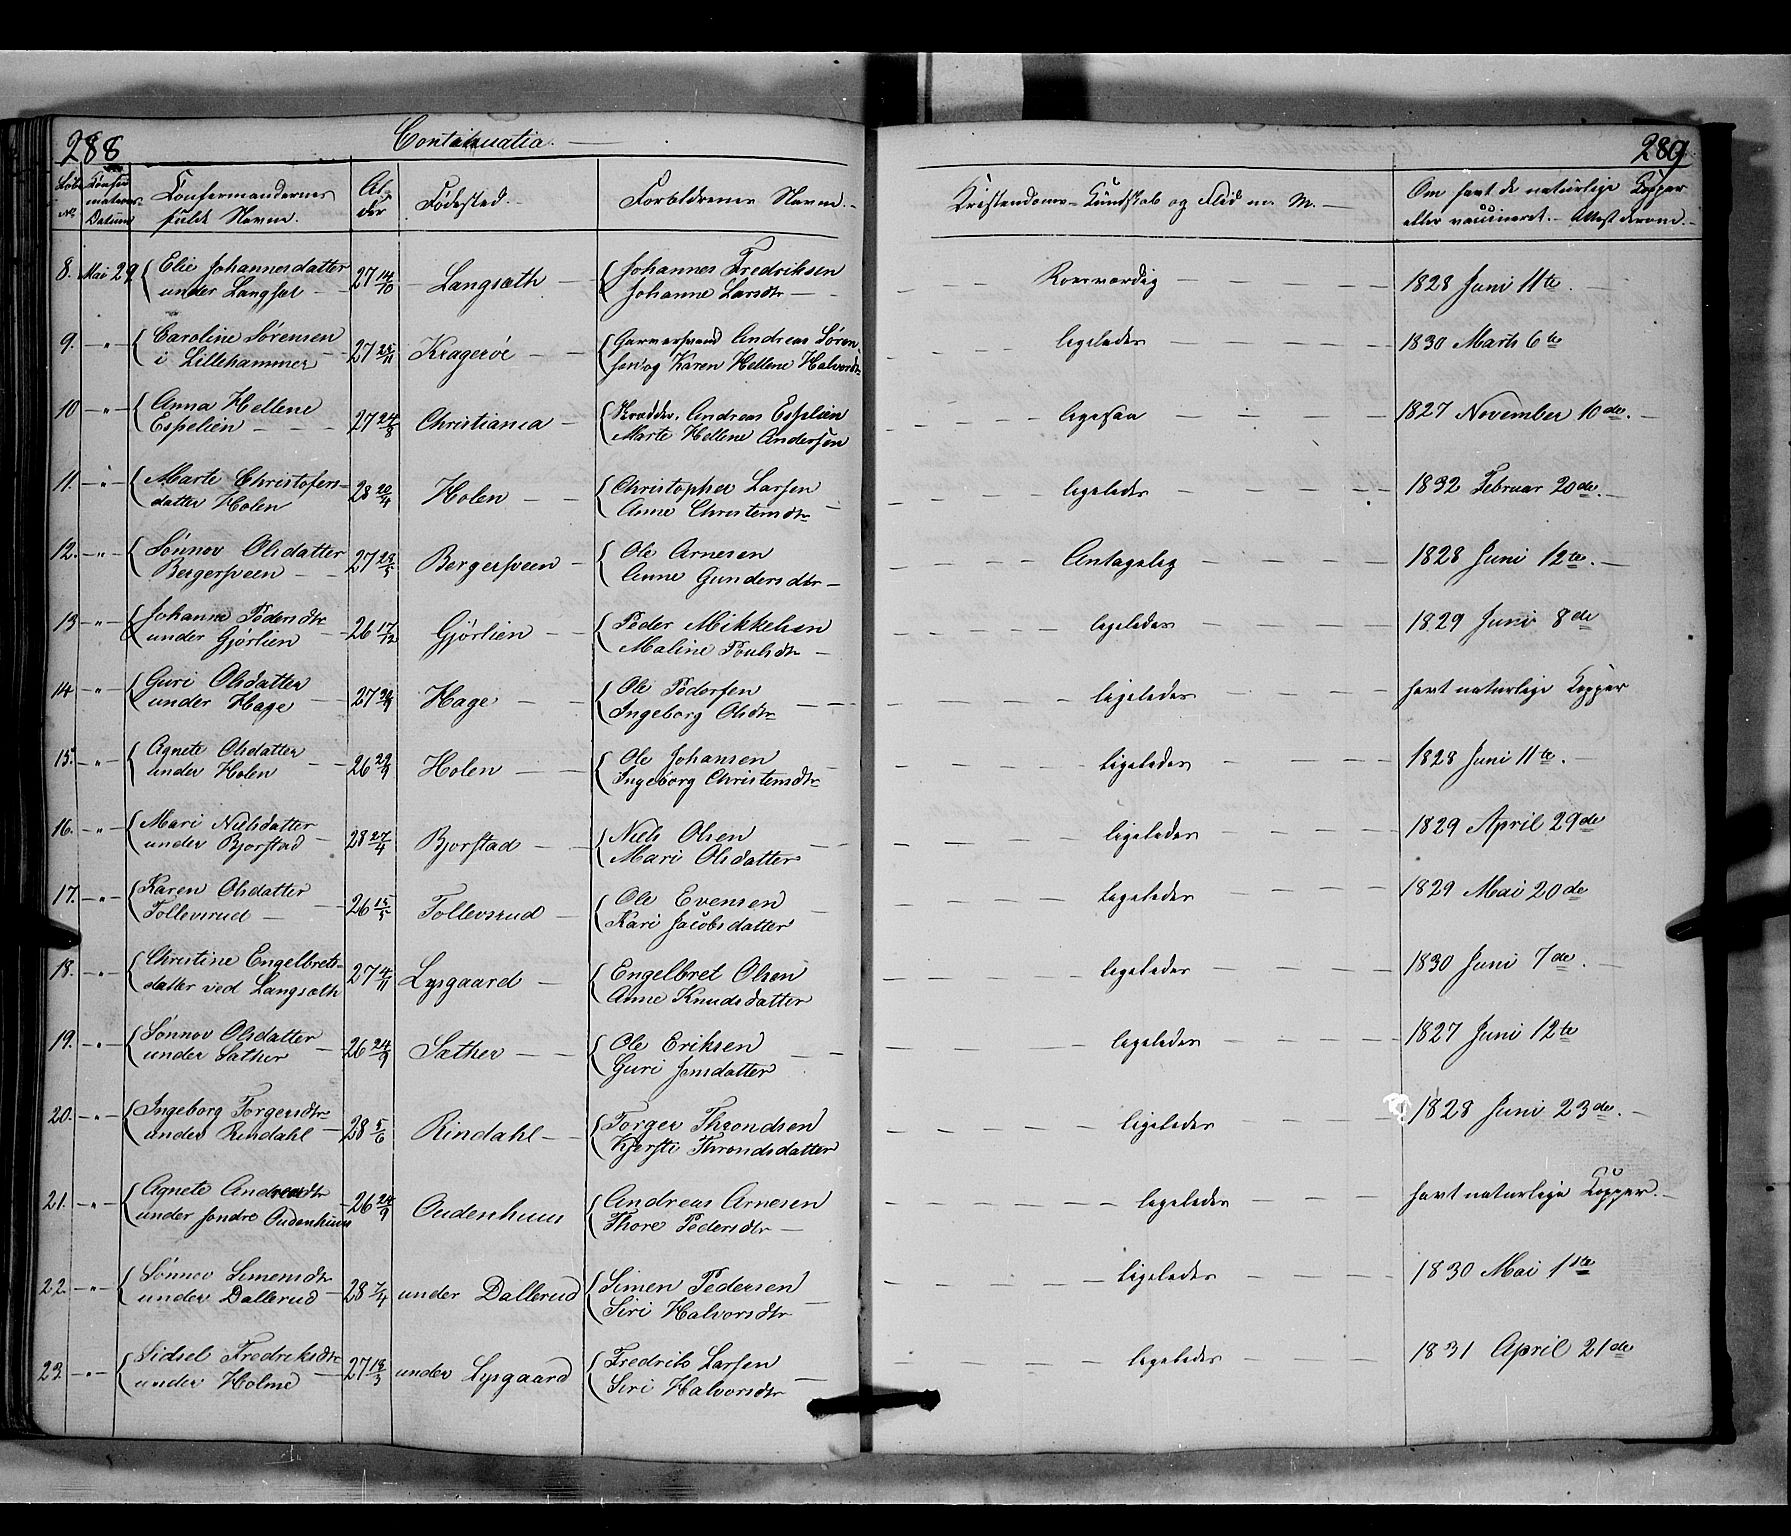 288
Continuatia.
289
Løbe No.
Konfermations Datum
Konfermandernes fulde Navn.
Alder
Fødested.
Forældrenes Navn.
Kristendoms-Kundskab og Flid m. M.
Om havt de naturlige Kopper eller vaccineret. Attest derom.
8. Mai 29 Elie Johannesdatter 27 14/10 Langsæth Johannes Fredriksen Roesværdig 1828 Juni 11te.
under Langset Johanne Larsdtr
9. " Caroline Sørensen 27 25/11 Kragerøe Garversvend Andreas Søren- ligeledes 1830 Marts 6te
i Lillehammer sen og Karen Hellene Halvorsdtr
10 " Anna Hellene 27 24/8 Christiania Skrædder. Andreas Espelien ligesaa 1827 November 10de.
Espelien Marte Hellene Andersen
11. " Marte Christofers- 28 20/4 Holen Christopher Larsen ligeledes 1832 Februar 20de.
datter Holen Anne Christensdtr
12. " Sønnov Olsdatter 27 23/5 Bergersveen Ole Arnesen Antagelig 1828 Juni 12te.
Bergersveen Anne Gundersdtr
13 " Johanne Pedersdtr 26 17/12 Gjørlien Peder Mikkelsen ligeledes 1829 Juni 8de
under Gjørlien Maline Poulsdtr
14 " Guri Olsdatter 27 Hage Ole Pedersen ligeledes havt naturlige Kopper
under Hage Ingeborg Olsdtr
15. " Agnete Olsdatter 26 29/9 Holen Ole Johansen ligeledes 1828 Juni 11te.
under Holen Ingeborg Christensdtr
16. " Mari Nielsdatter 28 27/4 Bjorstad Niels Olsen ligeledes 1829 April 29de
under Bjorstad Mari Olsdatter
17. " Karen Olsdatter 26 15/5 Tollevsrud Ole Evensen ligeledes 1829 Mai 20de
Tollevsrud Kari Jacobsdatter
18. " Christine Engelbrets- 27 4/11 Lysgaard Engelbret Olsen ligeledes 1830 Juni 7de.
datter ved Langsæth Anne Knudsdatter
19. " Sønnov Olsdatter 26 24/9 Sather Ole Eriksen ligeledes 1827 Juni 12te
under Sather Guri Jonsdatter
20. " Ingeborg Torgersdtr 28 5/6 Rindahl Torger Throndsen ligeledes 1828 Juni 23de.
under Rindahl Kjersti Throndsdatter
21. " Agnete Andreasdtr 26 24/9 Oudenhuus Andreas Arnesen ligeledes havt naturlige Kopper.
under søndre Oudenhuus Thore Pedersdtr
22. " Sønnov Simensdtr 28 7/4 under Dallerud Simen Pedersen ligeledes 1830 Mai 1ste
under Dallerud Siri Halvorsdtr
23 " Sidsel Fredriksdtr 27 18/3 under Lysgaard Fredrik Larsen ligeledes 1831 April 21de
under Holme Siri Halvorsdtr